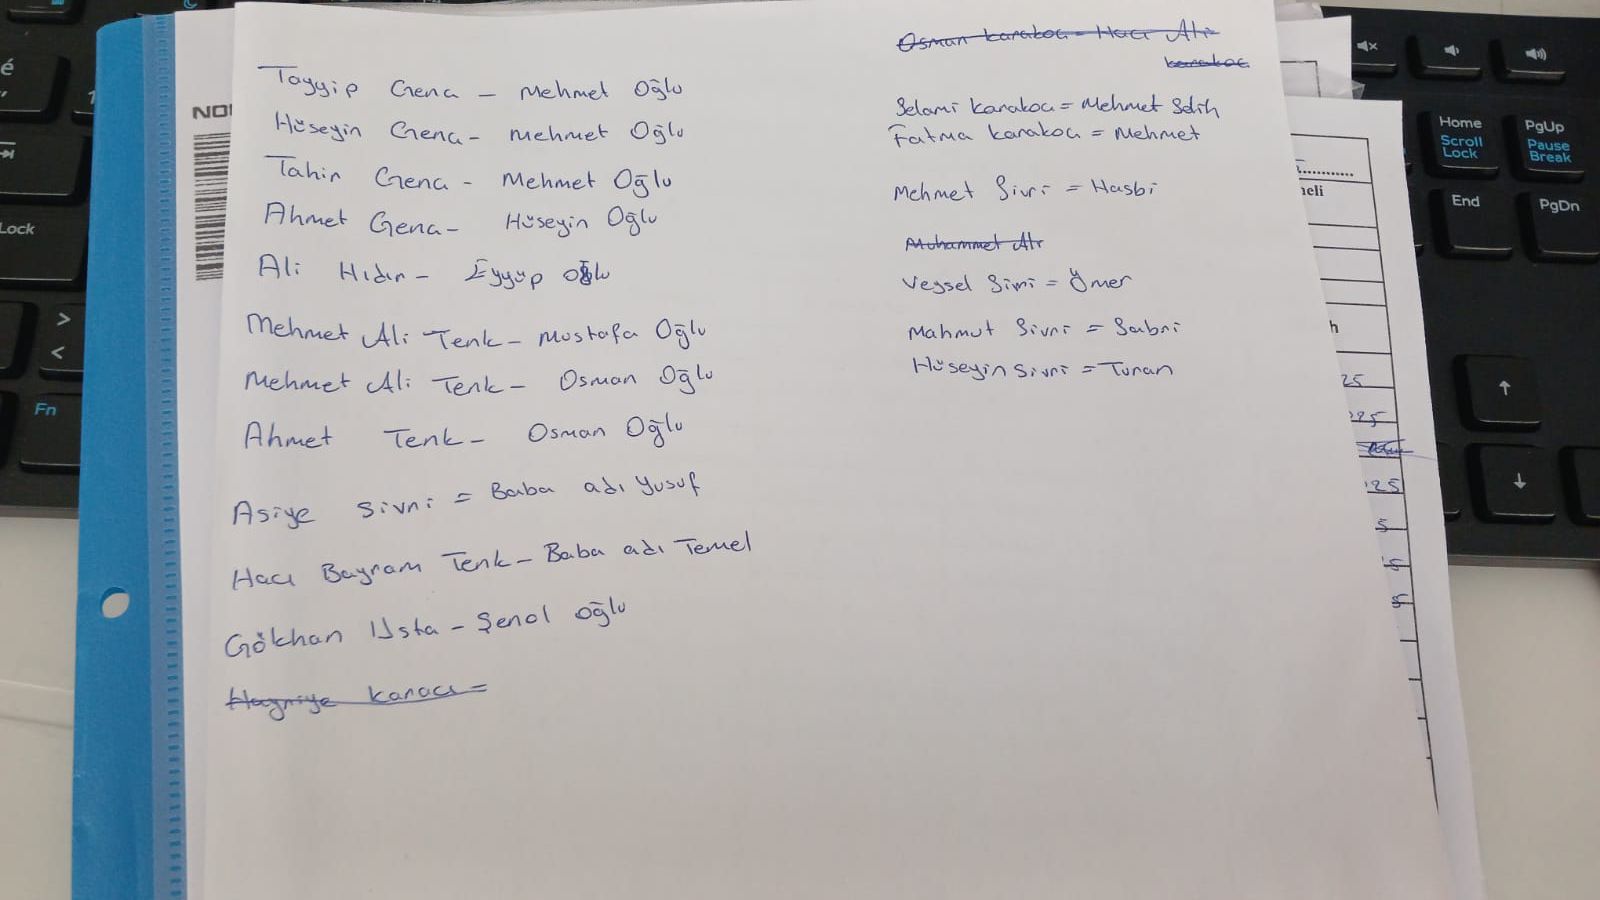 Tayyip Genç - Mehmet Oğlu
Hüseyin Genç - Mehmet Oğlu
Tahir Genç - Mehmet Oğlu
Ahmet Genç - Hüseyin Oğlu
Ali Hıdır - Eyyüp Oğlu
Mehmet Ali Tenk - Mustafa Oğlu
Mehmet Ali Tenk - Osman Oğlu
Ahmet Tenk - Osman Oğlu
Asiye Sivri = Baba adı Yusuf
Hacı Bayram Tenk - Baba adı Temel
Gökhan Usta - Şenol Oğlu
Hayriye Karaca =
Osman Karakoç - Hacı Ali
Karakoç
Selami Karakoç = Mehmet Salih
Fatma Karakoç = Mehmet
Mehmet Sivri = Hasbi
Muhammet Ali
Veysel Sivri = Ömer
Mahmut Sivri = Sabri
Hüseyin Sivri = Turan
NO
é
Lock
>
<
Fn
Home
Scroll
Lock
PgUp
Pause
Break
End
PgDn
neli
h
25
25
25
5
5
5